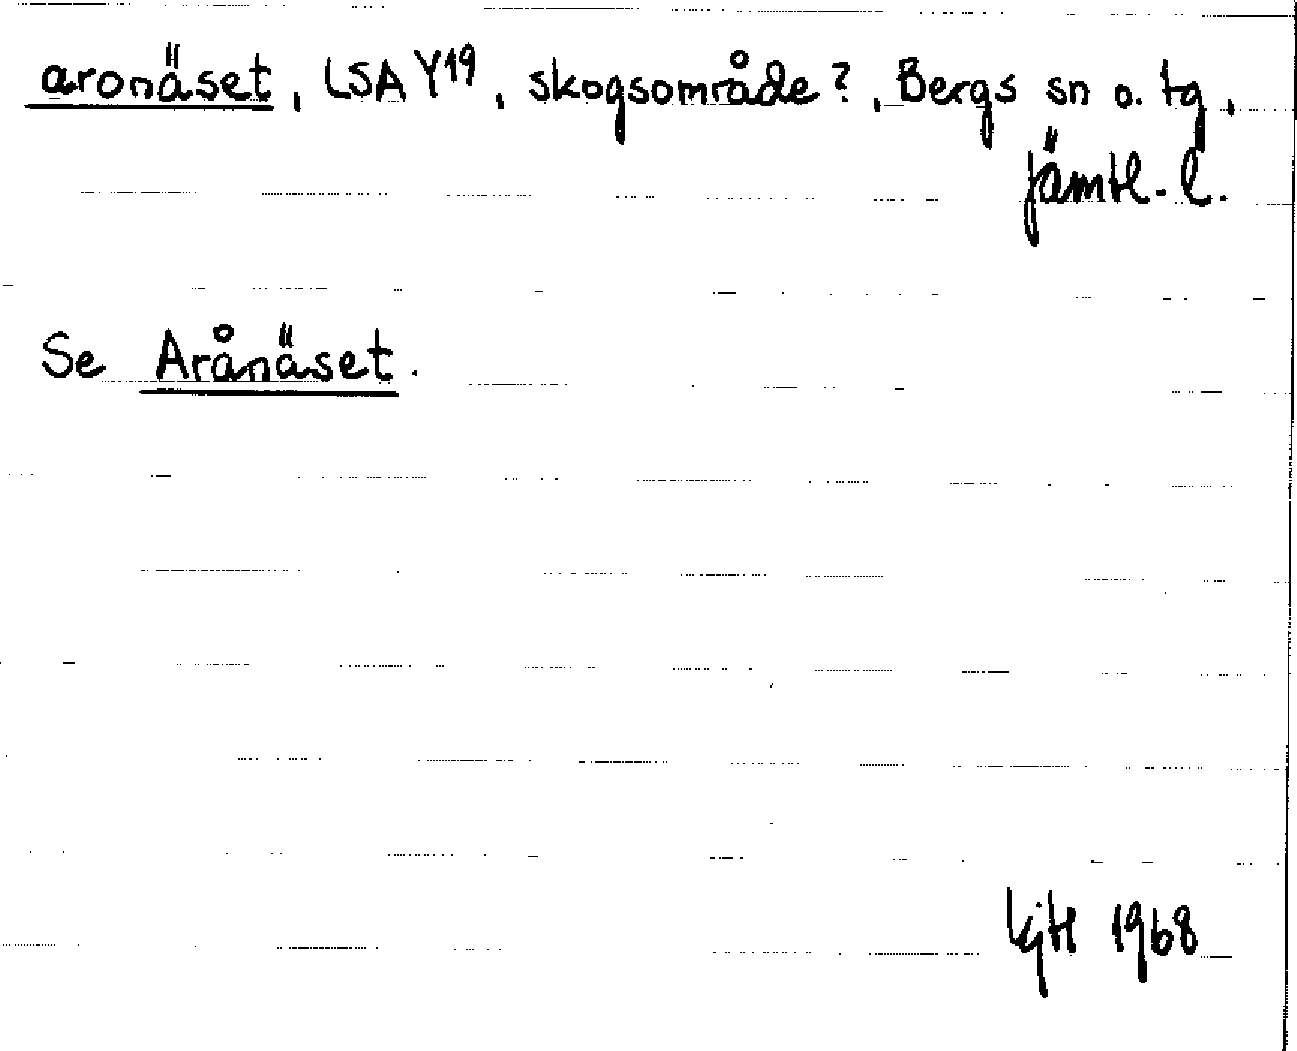 aronäset, LSA Y19, skogsområde?, Bergs sn o. tg,
Jämtl. l.
Se Arånäset.
1968